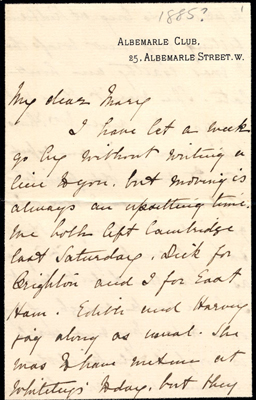 1885?
ALBEMARLE CLUB,
25, ALBEMARLE STREET. W.
My dear Mary
I have let a week
go by without writing a
line to you, but moving is
always an upsetting time.
We both left Cambridge
last Saturday, Dick for
Brighton and I for East
Ham. Edith and Harvey
jog along as usual. She
was to have met me at
Whiteleys today, but they